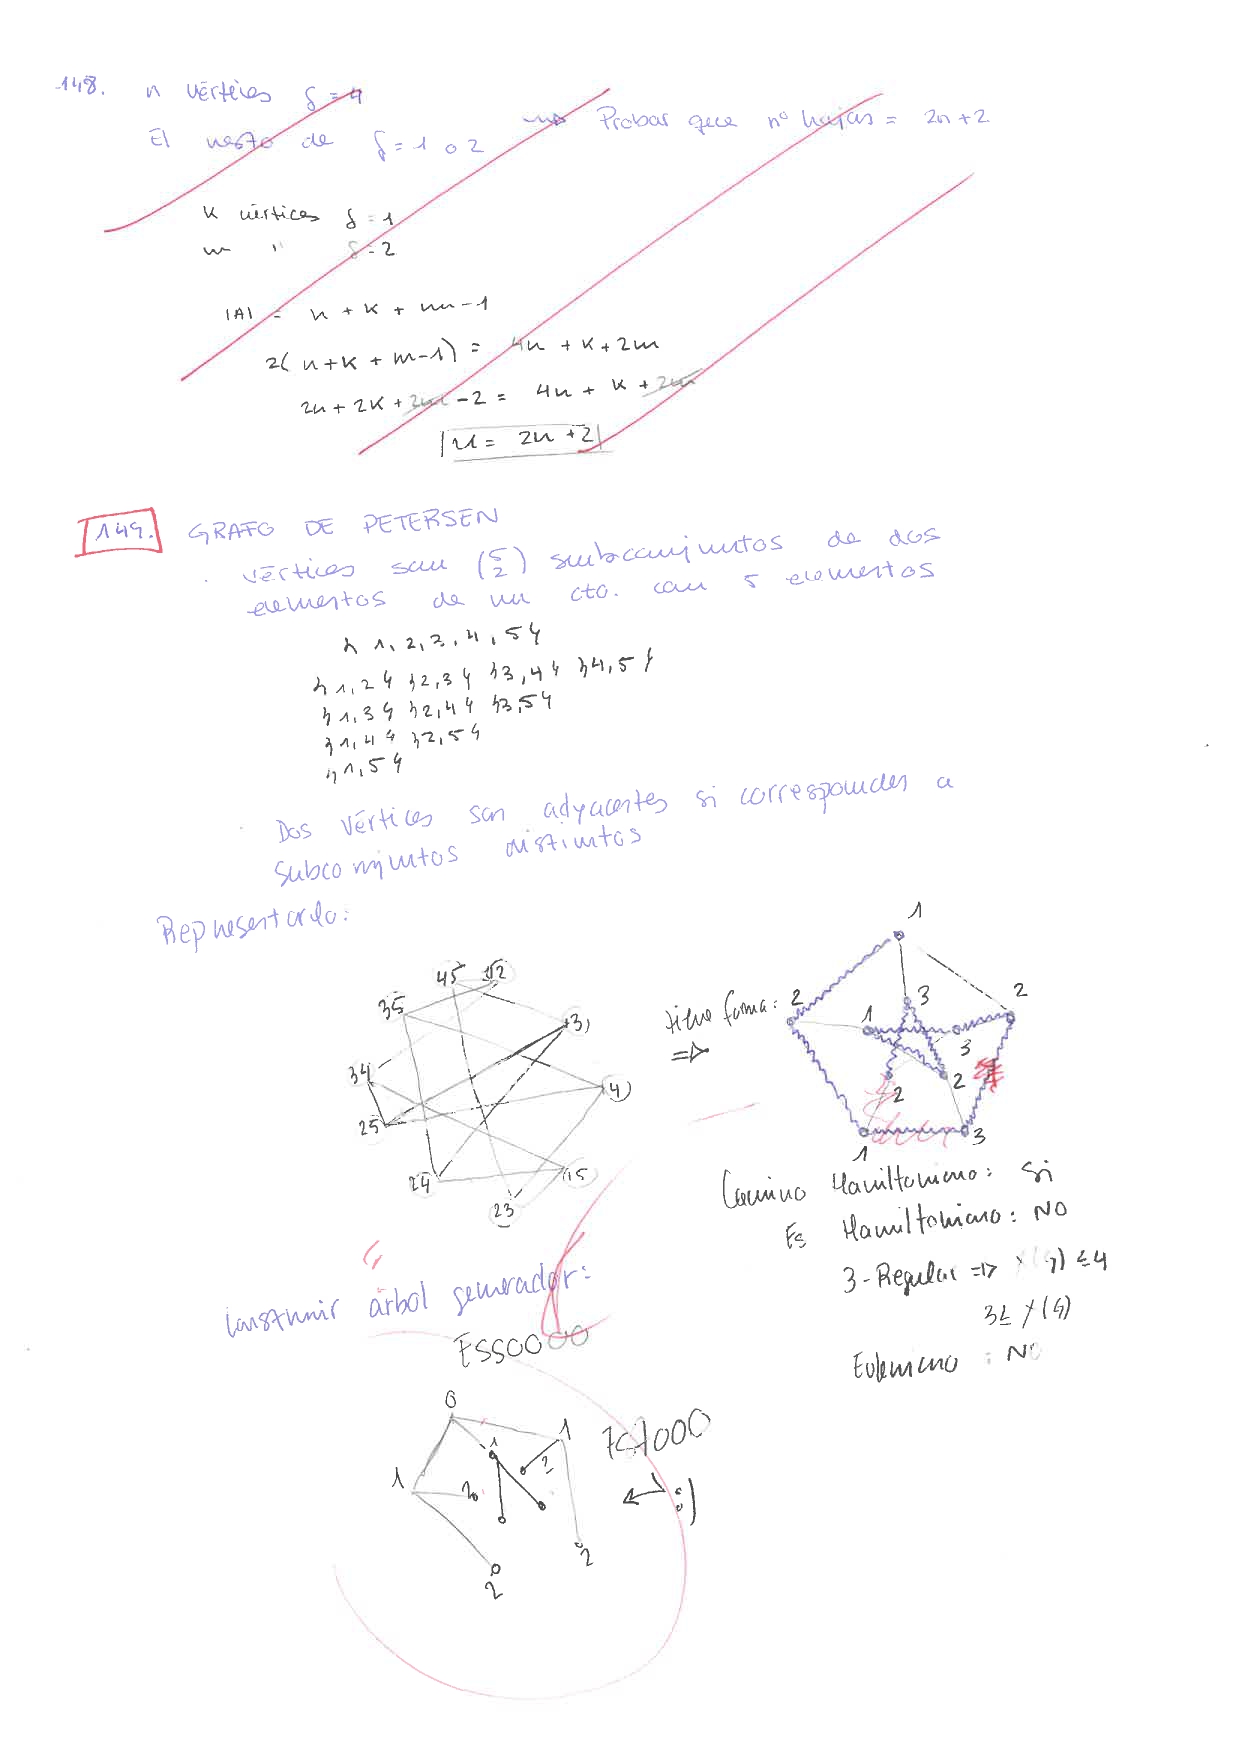 148. n vértices δ = 4
El resto de δ = 1 o 2 Probar que nº hojas = 2n+2
K vértices δ = 1
m " δ = 2
|A| = n + K + m - 1
2(n+K+m-1) = 4n + K + 2m
2n + 2K + 2m - 2 = 4n + K + 2m
K = 2n + 2
149. GRAFO DE PETERSEN
· Vértices son (5 2) subconjuntos de dos
elementos de un cto. con 5 elementos
{1,2,3,4,5}
{1,2} {2,3} {3,4} {4,5}
{1,3} {2,4} {3,5}
{1,4} {2,5}
{1,5}
· Dos vértices son adyacentes si corresponden a
subconjuntos distintos
Representarlo:
45 12
35
34
25
24
23
15
tiene forma:
⇒
1
2 3 2
1 3
2 2
1 3
Camino Hamiltoniano: Si
Es Hamiltoniano: NO
3-Regular ⇒ χ(G) ≤ 4
3 ≤ χ(G)
Euleriano: NO
Construir árbol generador:
0
1 1 1
2
2
2 2
:)